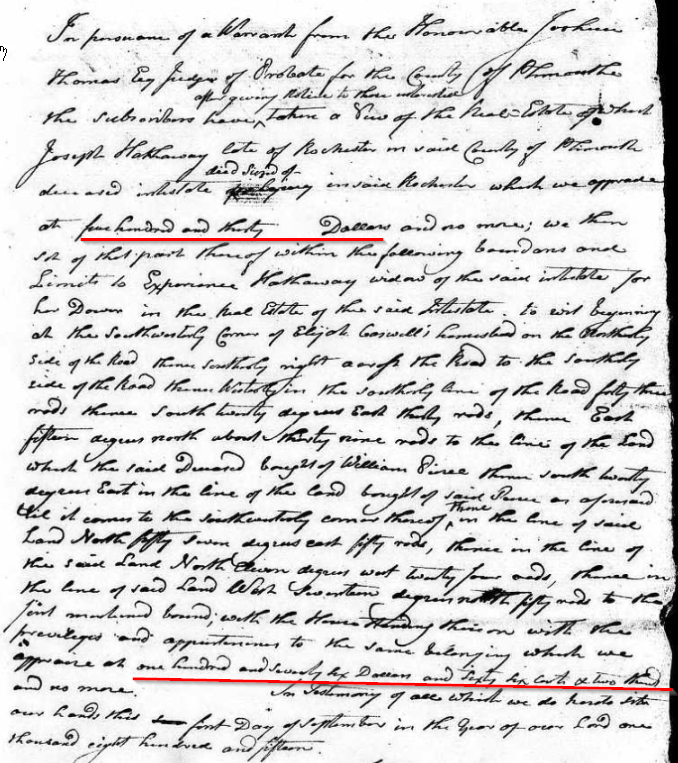 In pursuance of a Warrant from the Honourable Joshua
Thomas Esq Judge of Probate for the County of Plimouth
after giving Notice to those interested
the subscribers have, taken a View of the Real-Estate of which
Joseph Hathaway late of Rochester in said County of Plimouth
died siezed of
deceased intestate in said Rochester which we appraise
at five hundred and thirty Dollars and no more; we then
set of this part thereof within the following boundaris and
Limits to Experience Hathaway widow of the said intestate for
her Dower in the Real Estate of the said Intestate. to wit beginning
at the Southwesterly Corner of Elijah Caswell's homestead on the Northerly
Side of the Road thence southerly right across the Road to the southerly
side of the Road thence Westerly in the southerly line of the Road forty three
rods thence South twenty degrees East thirty rods, thence East
fifteen degrees north about thirty nine rods to the line of the Land
which the said Deceased bought of William Peirce thence south twenty
degrees East in the line of the land bought of said Pierce as aforesaid
thence
till it comes to the southwesterly corner thereof, in the line of said
Land North fifty seven degrees east fifty rods, thence in the line of
the said Land North Eleven degrees west twenty four rods, thence in
the line of said Land West Seventeen degrees north fifty rods to the
first mentioned bound; with the House standing thereon with the
privileges and appurtenences to the same belonging which we
appraise at one hundred and seventy six Dollars and Sixty six Cents & two thirds
and no more. In Testimony of all which we do hereto set
our hands this first Day of September in the Year of our Lord one
thousand eight hundred and fifteen.